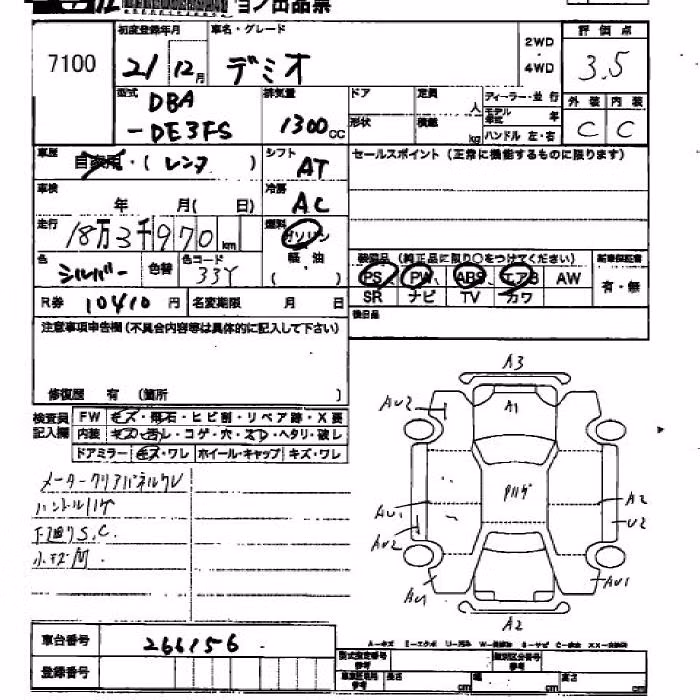 出品票
7100
初度登録年月
21 12月
車名・グレード
デミオ
2WD
4WD
評価点
3.5
型式
DBA
-DE3FS
排気量
1300cc
ドア
定員 人
形状
積載 kg
ディーラー・並行
モデル年式 年
ハンドル 左・右
外装 内装
C C
車歴
自家用・(レンタ )
シフト
AT
セールスポイント(正常に機能するものに限ります)
車検
年 月( 日)
冷房
AC
走行
18万3千970km
燃料
ガソリン
軽油
( )
色
シルバー
色替
色コード
33Y
装備品(純正品に限り○をつけてください)
PS PW ABS エアB AW
SR ナビ TV カワ
新車保証書
有・無
R券 10410円
名変期限 月 日
後日品
注意事項申告欄(不具合内容等は具体的に記入して下さい)
修復歴 有(箇所 )
検査員
記入欄
FW キズ・飛石・ヒビ割・リペア跡・X要
内装 キズ・汚レ・コゲ・穴・スレ・ヘタリ・破レ
ドアミラー キズ・ワレ ホイール・キャップ キズ・ワレ
メータークリアパネルワレ
ハンドルハゲ
下廻りS.C.
A3
AU2
A1
AU1
AU2
AU1
A2
U2
AU1
A2
車台番号
266156
登録番号
型式指定番号
参考
類別区分番号
参考
長さ cm
幅 cm
高さ cm